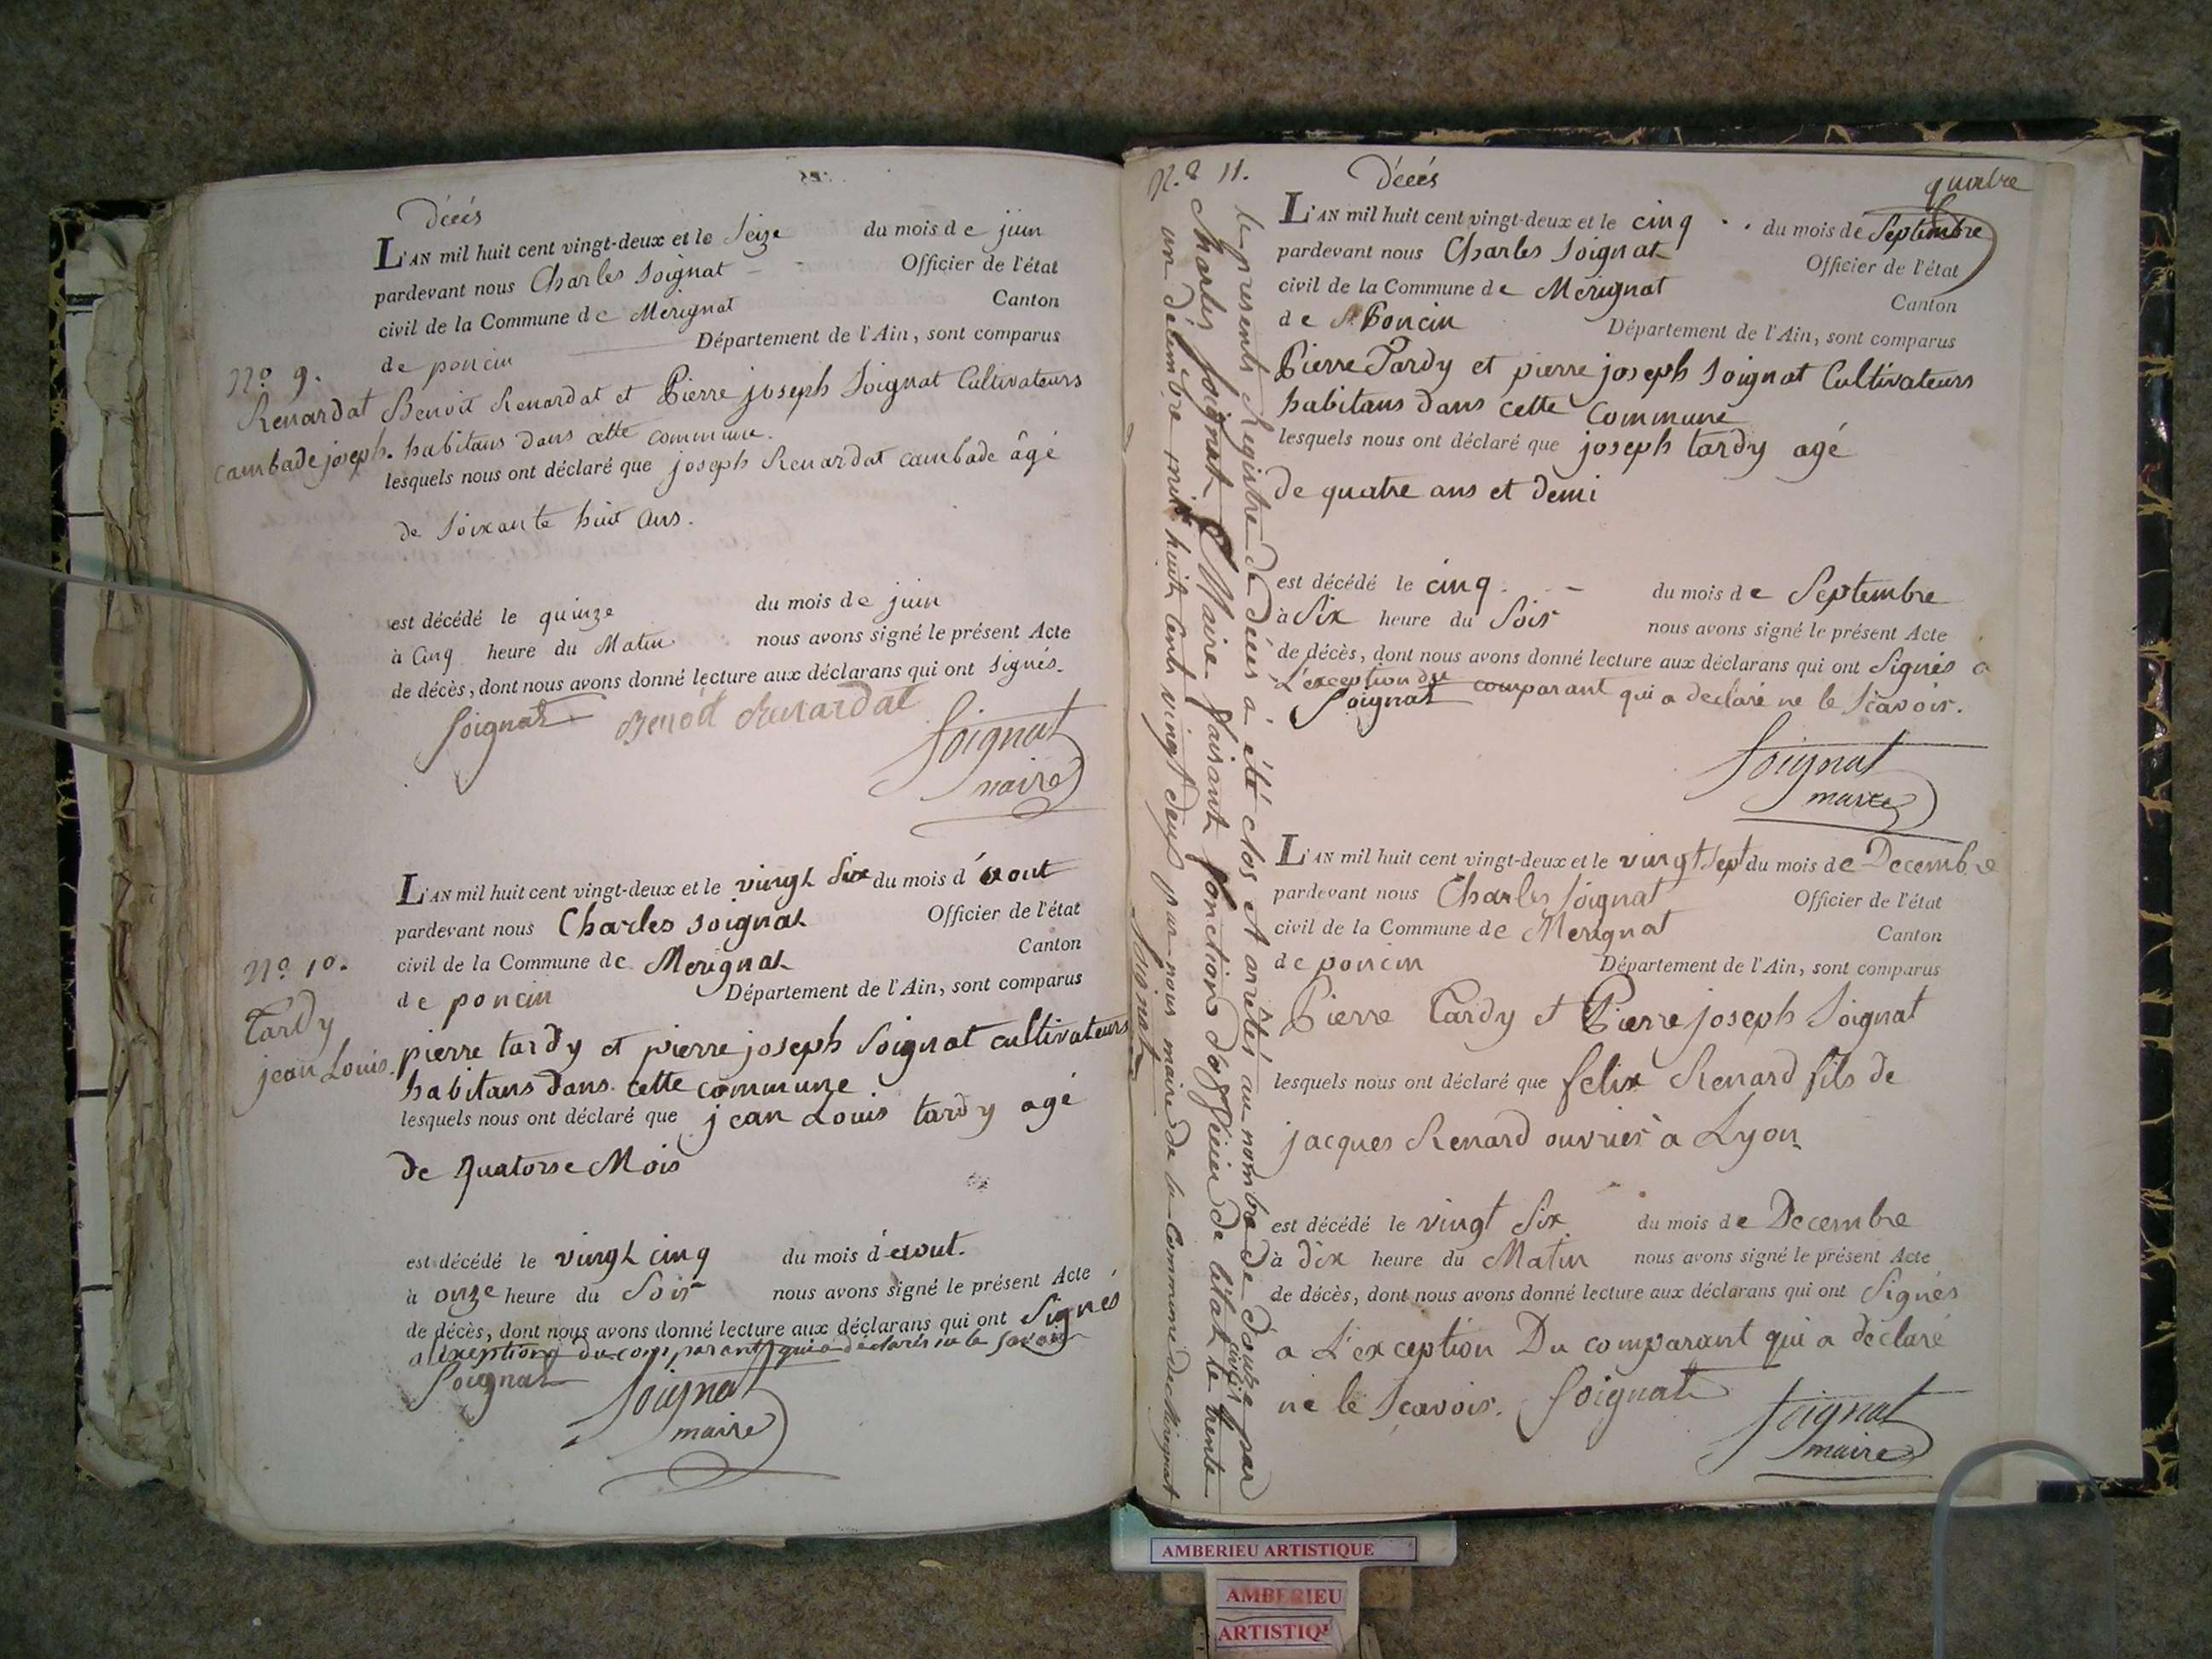 décés
L'AN mil huit cent vingt-deux et le Seize du mois de juin
pardevant nous Charles Soignat Officier de l'état
civil de la Commune de Merignat Canton
de poncin Département de l'Ain, sont comparus
Nº 9.
Renardat
cambade joseph.
Benoit Renardat et Pierre joseph Soignat Cultivateurs
habitans dans cette commune.
lesquels nous ont déclaré que joseph Renardat cambade âgé
de Soixante huit ans.
est décédé le quinze du mois de juin
à Cinq heure du Matin nous avons signé le présent Acte
de décès, dont nous avons donné lecture aux déclarans qui ont signés.
Soignat Benoit Renardat
Soignat
maire
L'AN mil huit cent vingt-deux et le vingt Six du mois d'aout
pardevant nous Charles Soignat Officier de l'état
civil de la Commune de Merignat Canton
de poncin Département de l'Ain, sont comparus
Nº 10.
Tardy
jean Louis.
pierre tardy et pierre joseph Soignat cultivateurs
habitans dans cette commune
lesquels nous ont déclaré que jean Louis tardy agé
de Quatorse Mois
est décédé le vingt cinq du mois d'aout.
à onze heure du Soir nous avons signé le présent Acte
de décès, dont nous avons donné lecture aux déclarans qui ont Signés
du comparant qui a
Soignat
Soignat
maire
N.º 11.
quatre
décés
L'AN mil huit cent vingt-deux et le cinq du mois de Septembre
pardevant nous Charles Soignat Officier de l'état
civil de la Commune de Merignat Canton
de Poncin Département de l'Ain, sont comparus
Pierre Tardy et pierre joseph Soignat Cultivateurs
habitans dans cette Commune
lesquels nous ont déclaré que joseph tardy agé
de quatre ans et demi
est décédé le cinq du mois de Septembre
à Six heure du Soir nous avons signé le présent Acte
de décès, dont nous avons donné lecture aux déclarans qui ont Signés a
L'exception du comparant qui a declaré ne le Scavoir.
Soignat
Soignat
maire
L'AN mil huit cent vingt-deux et le vingt Sept du mois de Decembre
pardevant nous Charles Soignat Officier de l'état
civil de la Commune de Merignat Canton
de poncin Département de l'Ain, sont comparus
Pierre Tardy et Pierre joseph Soignat
lesquels nous ont déclaré que felix Renard fils de
jacques Renard ouvrier a Lyon
est décédé le vingt Six du mois de Decembre
à dix heure du Matin nous avons signé le présent Acte
de décès, dont nous avons donné lecture aux déclarans qui ont Signés
a L'exception Du comparant qui a déclaré
ne le Scavoir. Soignat
Soignat
maire
le present Registre de décés à été clos et arretés au nombre de douze par
Charles Soignat Maire faisant fonctions d'officier de l'état civil le trente
un décembre mil huit cent vingt deux par nous maire de la Commune de Merignat
Soignat
AMBERIEU ARTISTIQUE
AMBERIEU
ARTISTIQ